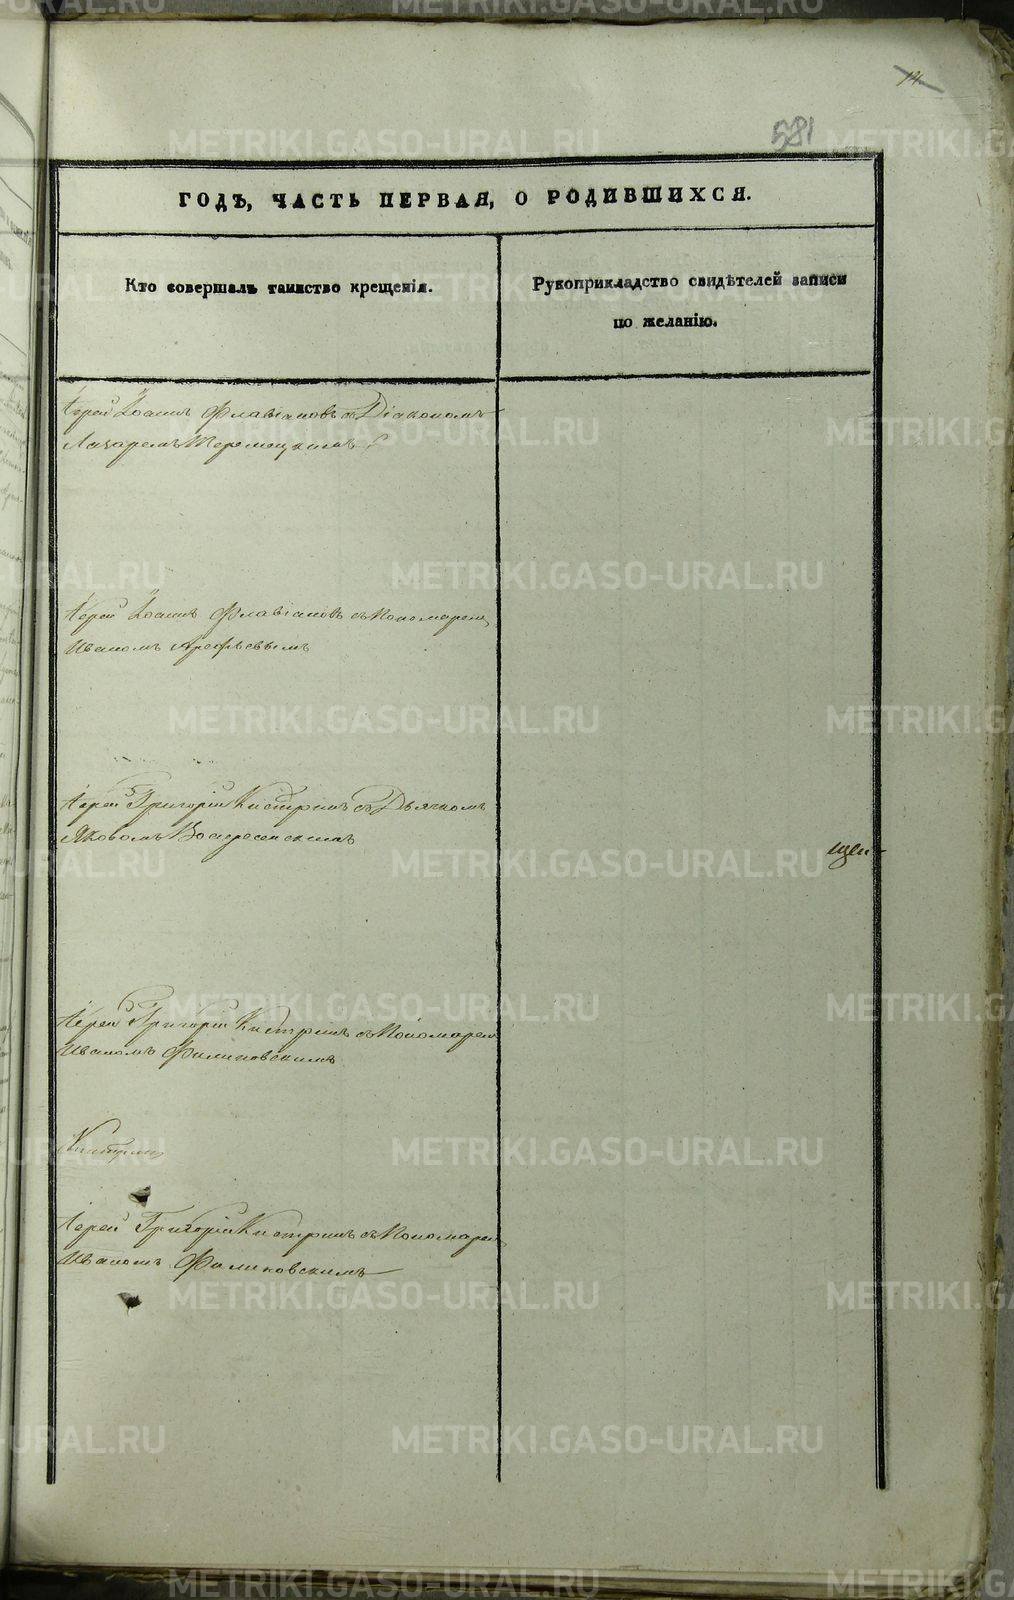 14
581
ГОДЪ, ЧАСТЬ ПЕРВАЯ, О РОДИВШИХСЯ.
Кто совершалъ таинство крещенія.
Рукоприкладство свидѣтелей записи
по желанію.
Іерей Іоаннъ Флавіановъ съ Діакономъ
Лазаремъ Теремецкимъ
Іерей Іоаннъ Флавіановъ съ Пономаремъ
Иваномъ Арефьевымъ
Іерей Григорій Кистринъ съ Дьячкомъ
Яковомъ Воскресенскимъ
щен-
Іерей Григорій Кистринъ съ Пономарем
Иваномъ Филиковскимъ
Кистринъ
Іерей Григорій Кистринъ съ Пономарем
Иваномъ Филиковскимъ
METRIKI.GASO-URAL.RU